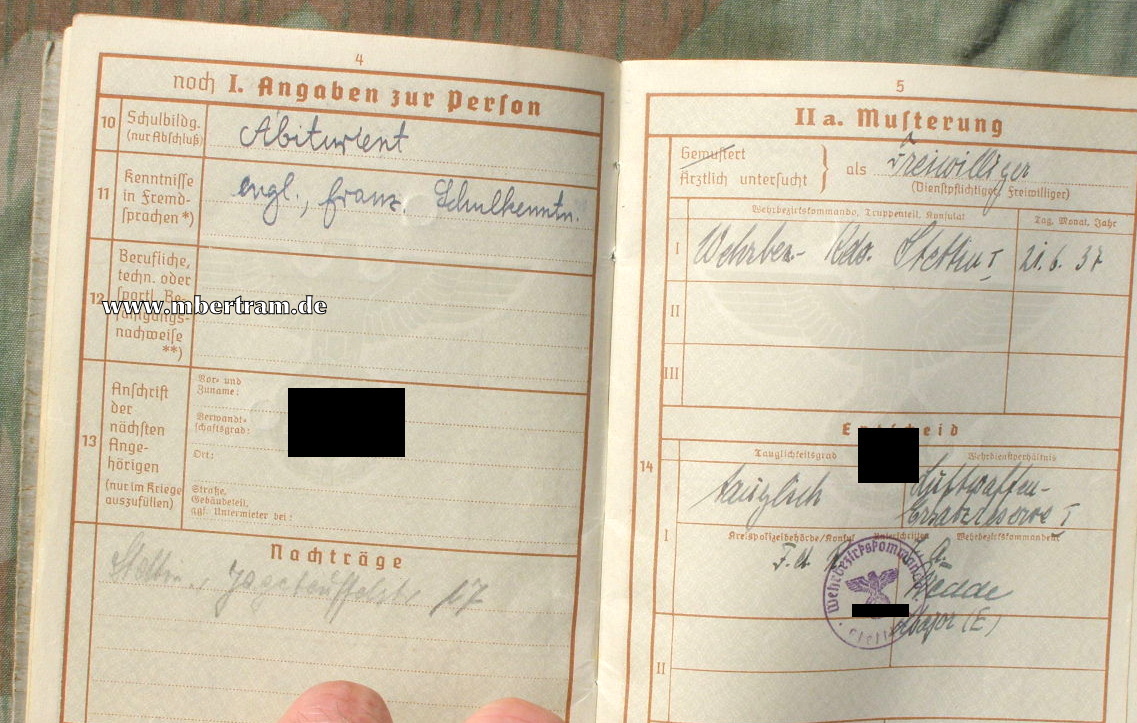 4
noch I. Angaben zur Person
10
Schulbildg.
(nur Abschluß)
Abiturient
11
Kenntnisse
in Fremd-
sprachen *)
engl., franz. Schulkenntn.
12
Berufliche,
techn. oder
sportl. Be-
fähigungs-
nachweise
**)
www.mbertram.de
13
Anschrift
der
nächsten
Ange-
hörigen
(nur im Kriege
auszufüllen)
Vor- und
Zuname:
Verwandt-
schaftsgrad:
Ort:
Straße,
Gebäudeteil,
ggf. Untermieter bei:
Nachträge
17
5
II a. Musterung
Gemustert
Ärztlich untersucht
als Freiwilliger
(Dienstpflichtiger, Freiwilliger)
Wehrbezirkskommando, Truppenteil, Konsulat
Tag, Monat, Jahr
I
Wehrbez.- Kdo. Stettin I
21. 6. 37
II
III
Entscheid
14
Tauglichkeitsgrad
Wehrdienstverhältnis
tauglich
Luftwaffen-
Ersatzreserve I
I
Kreispolizeibehörde/Konsul
Unterschriften
Wehrbezirkskommandeur
Wehrbezirkskommando
Major (E)
II